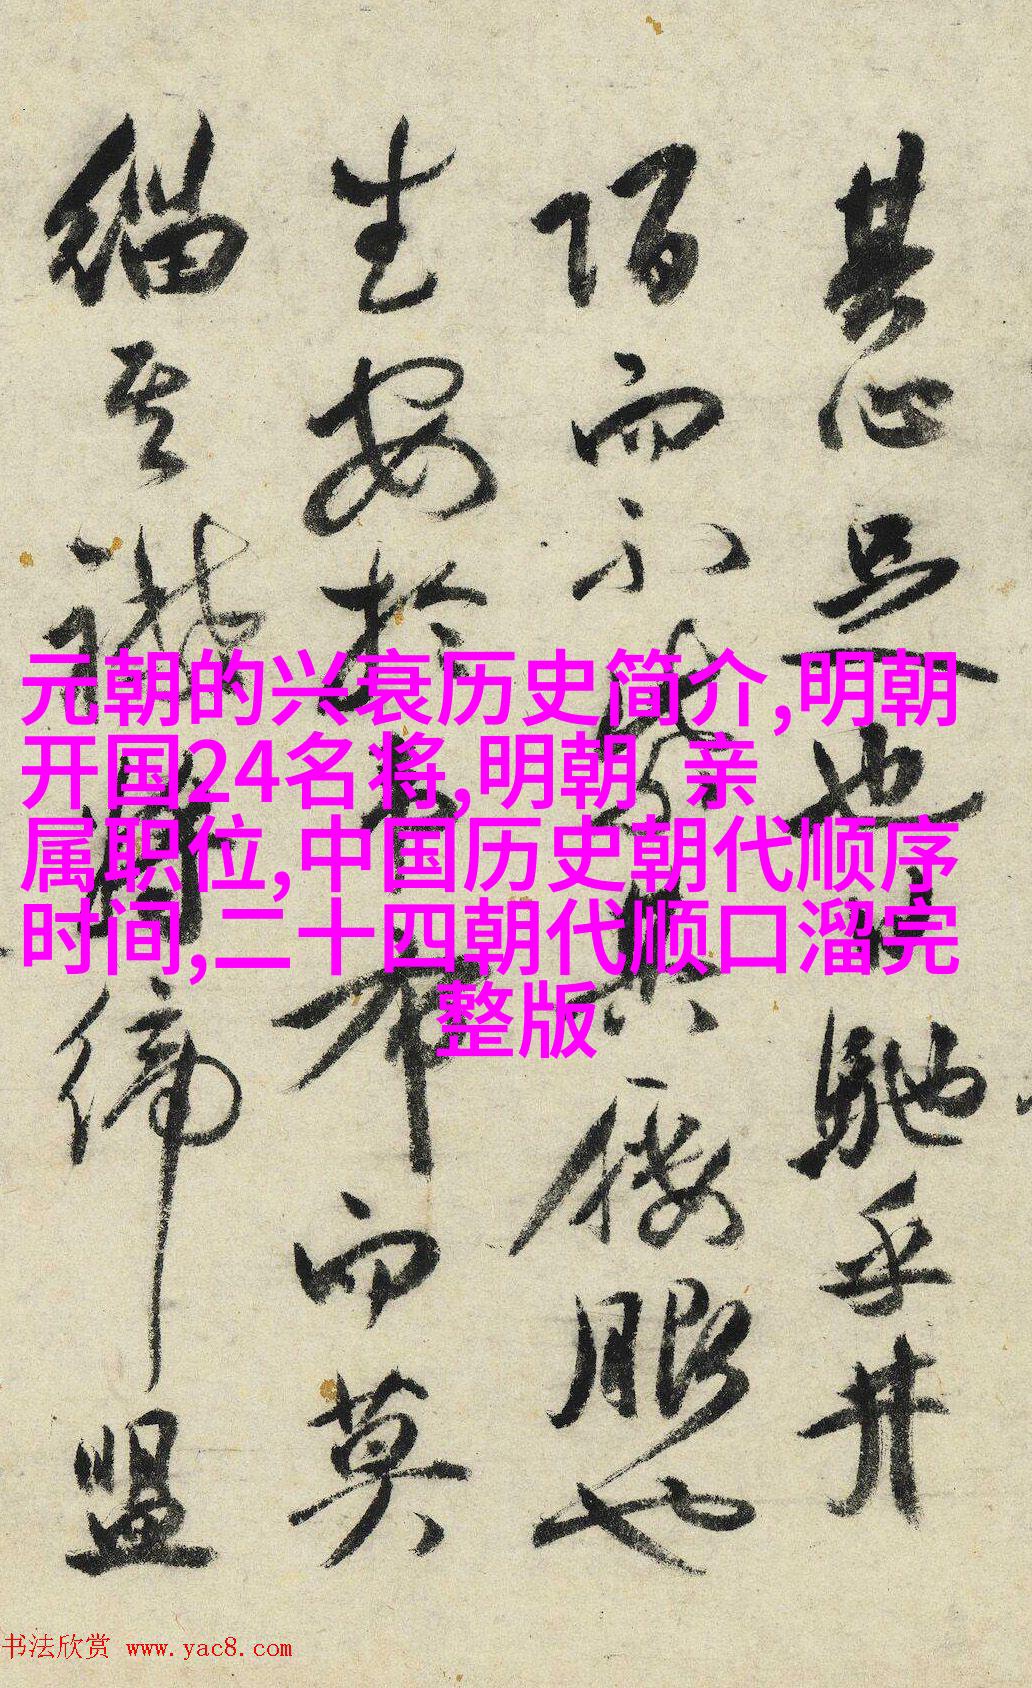 元朝的兴衰历史简介,明朝
开国24名将,明朝 亲
属职位,中国历史朝代顺序
时间,二十四朝代顺口溜完
整版
其心且也馳乎井
陌而不與暇也
生安於布而莫
緇其締盟
书法欣赏 www.yac8.com